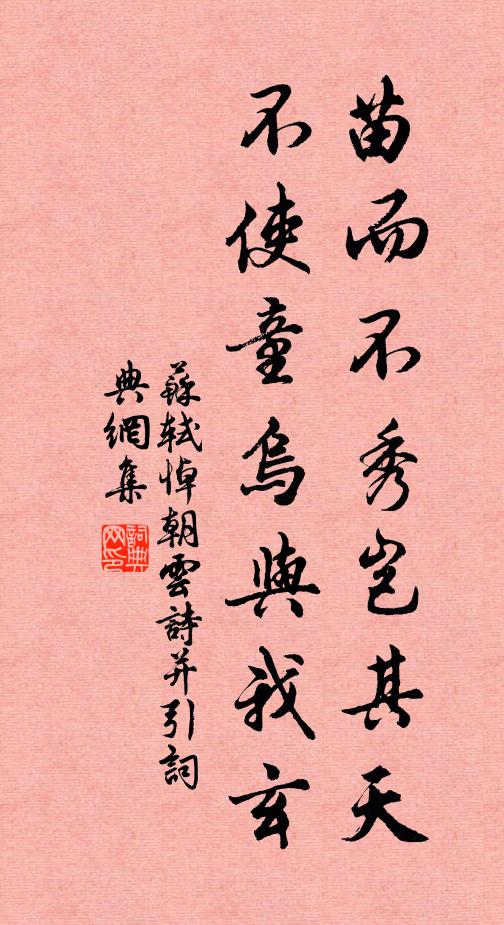 苗而不秀豈其天
不使童烏與我玄
蘇軾悼朝雲詩并引詞
典網集
詞典
网印